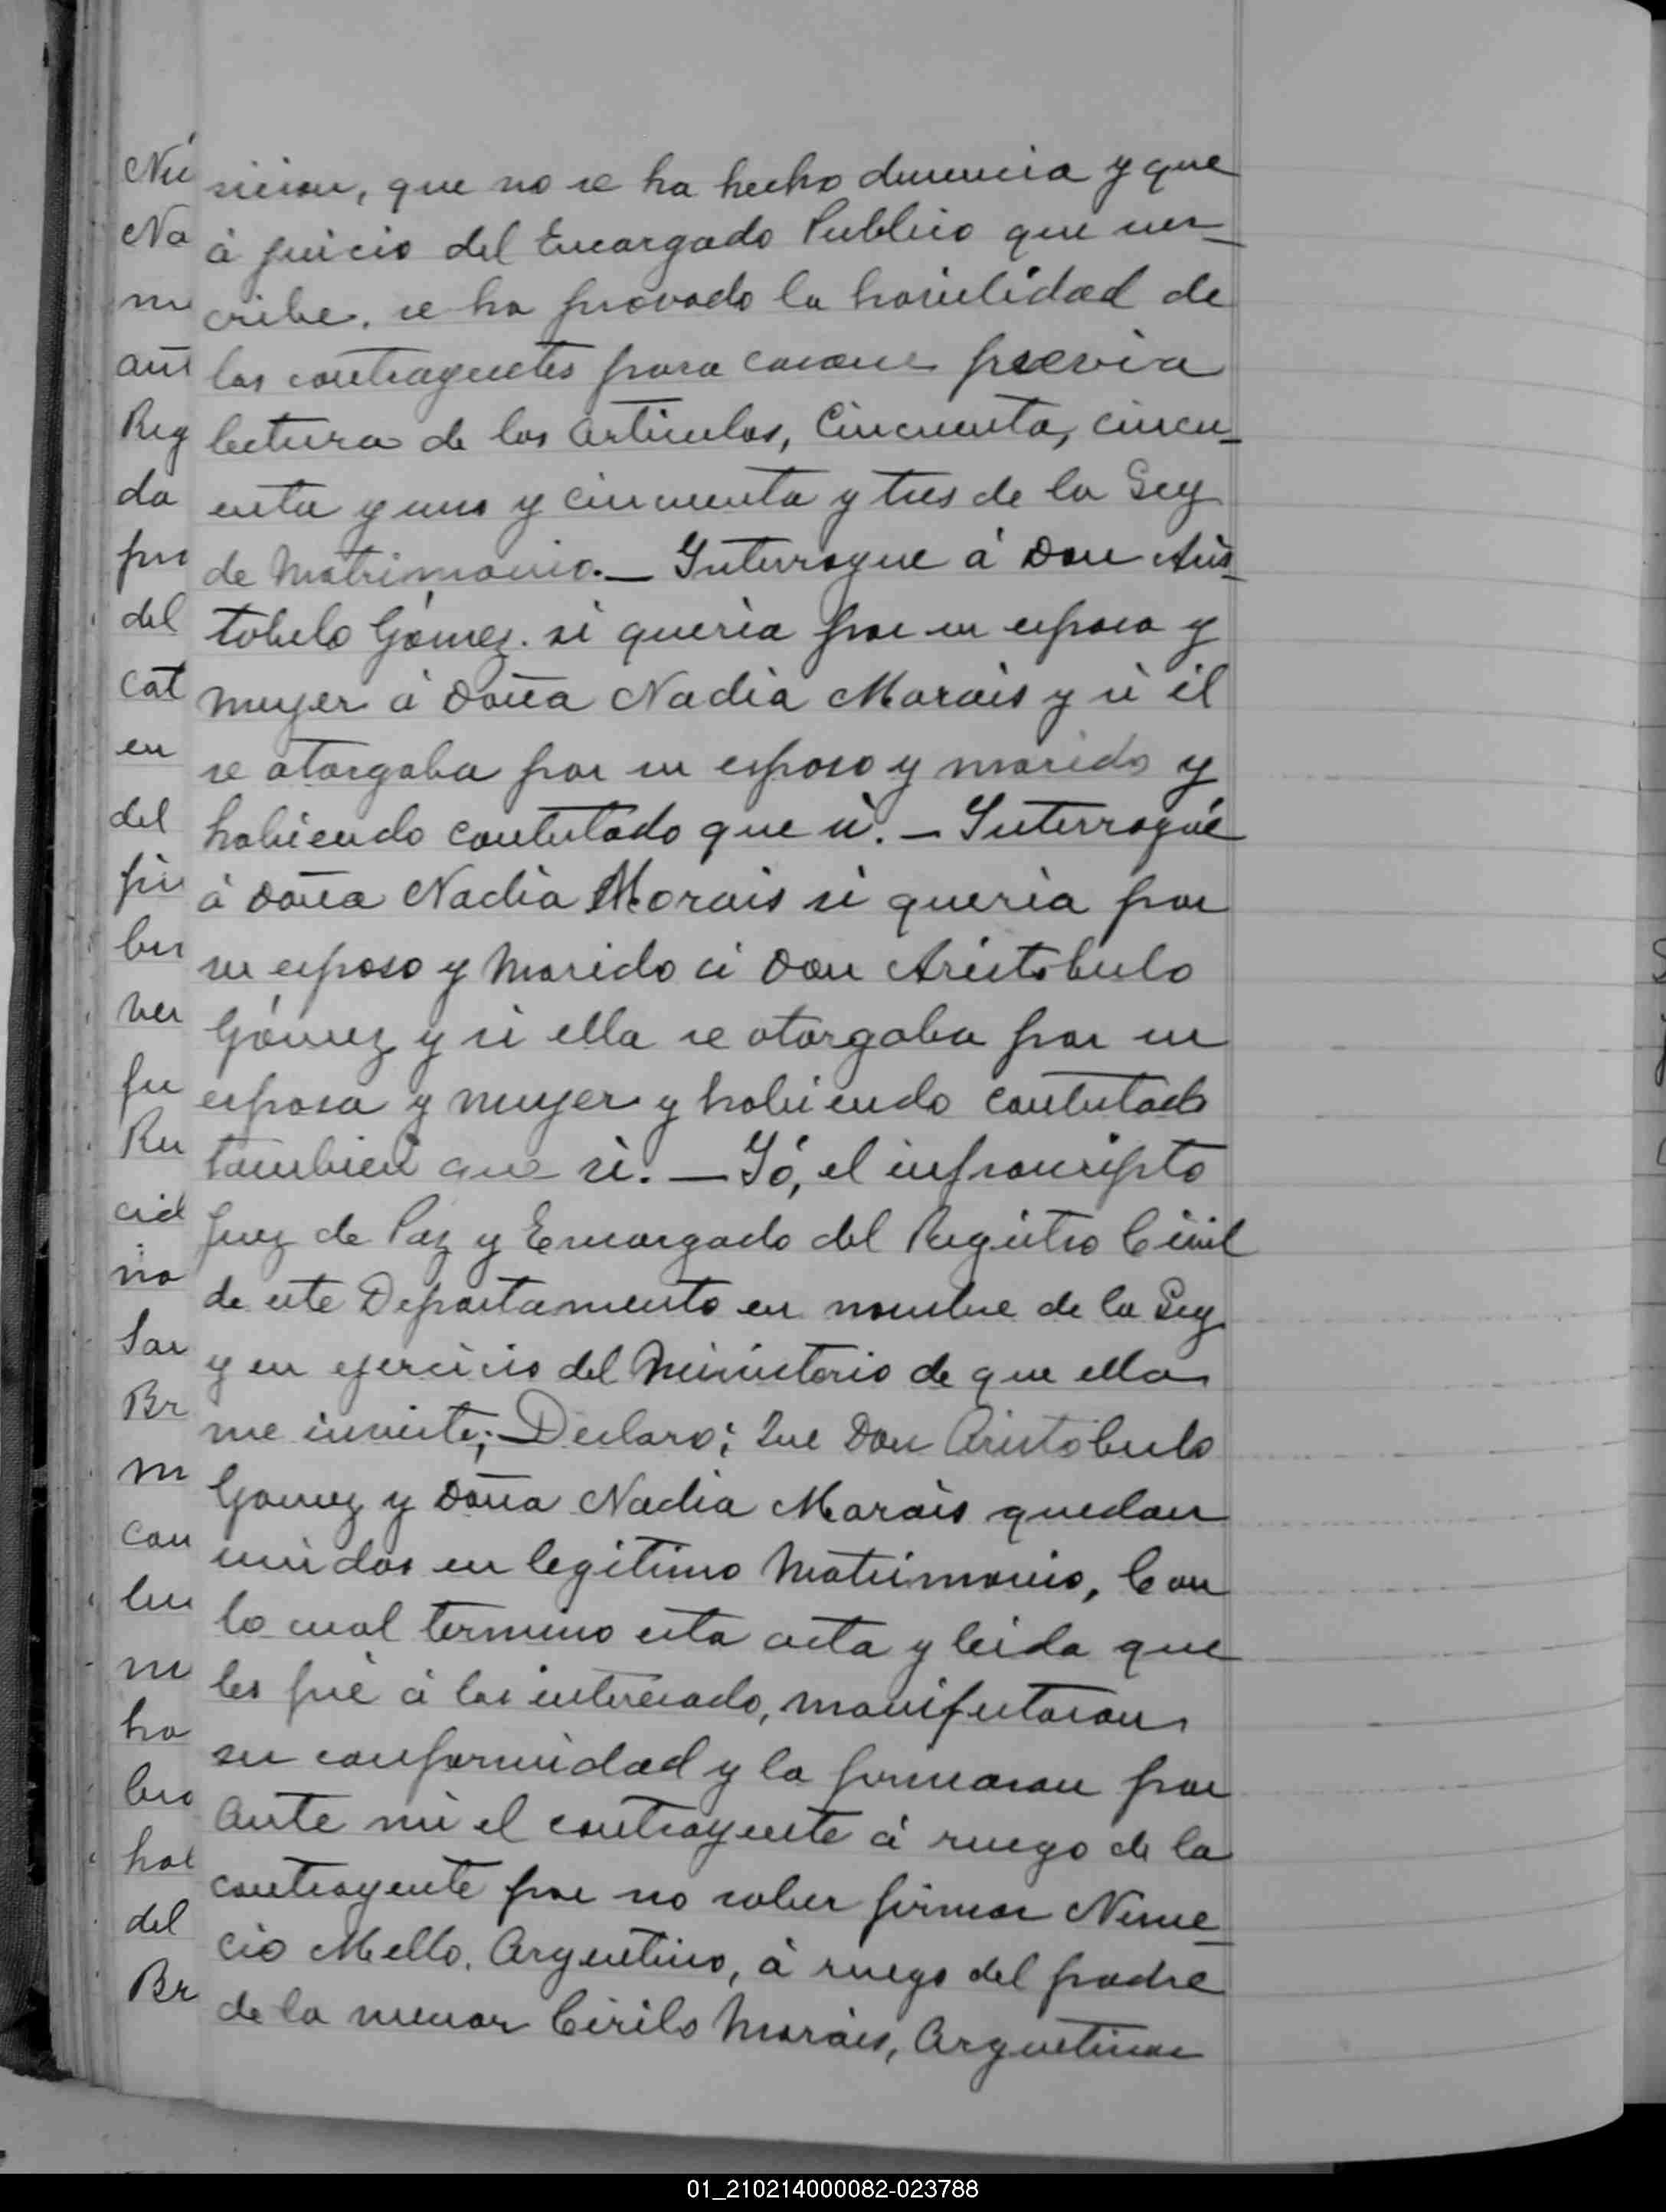 sicion, que no se ha hecho denuncia y que
à juicio del Encargado Publico que sus-
cribe, se ha provado la havilidad de
los contrayentes para casarse previa
lectura de los Articulos, Cincuenta, cincu-
enta y uno y cincuenta y tres de la Ley
de Matrimonio.— Interrogue à Don Aris-
tobulo Gómez. si queria por su esposa y
muyer à Doña Nadia Morais y si él
se otorgaba por su esposo y marido y
habiendo contestado que si.— Interrogué
à Doña Nadia Morais si queria por
su esposo y Marido à Don Aristobulo
Gómez y si ella se otorgaba por su
esposa y muyer y habiendo contestado
tambien que si.— Yó, el infrascripto
Juez de Paz y Encargado del Registro Civil
de este Departamento en nombre de la Ley
y en ejercicio del Ministerio de que ella
me inviste;— Declaro; Que Don Aristobulo
Gomez y Doña Nadia Morais quedan
unidos en legitimo Matrimonio, Con
lo cual termino esta acta y leida que
les fué à los interesado, manifestaron
su conformidad y la firmaron por
Ante mi el contrayente à ruego de la
contrayente por no saber firmar Neme-
cio Mello, Argentino, à ruego del padre
de la menor Cirilo Morais, Argentino
Nú
Na
m
añ
Reg
da
pu
del
cat
en
del
ber
ver
fu
Ru
cid
no
Sar
Br
m
con
lu
m
ha
bro
hal
del
Br
01_210214000082-023788